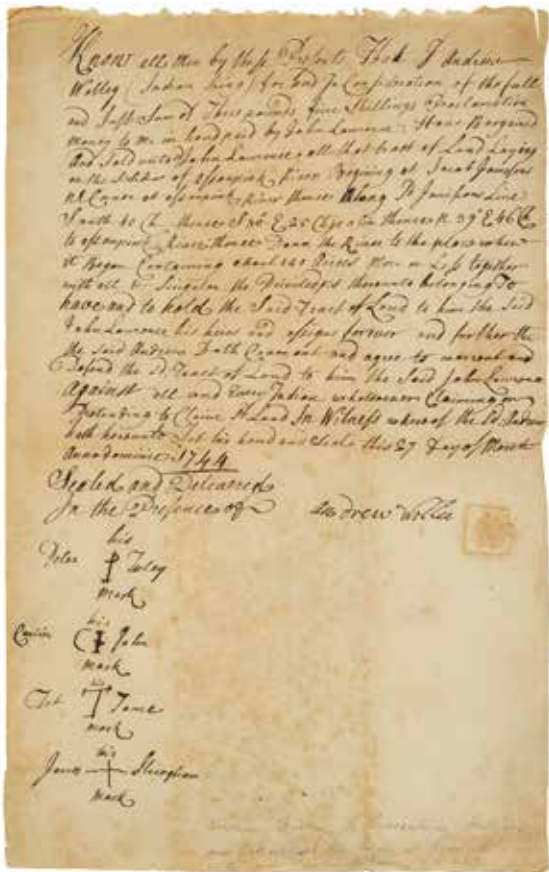 Know all Men by these Presents That I Andrew
Wolley (Indian King) for and In Consideration of the full
and Just Sum of Three pounds five Shillings Proclamation
money to me in hand paid by John Lawrence Have Bargained
And Sold unto Sd John Lawrence all that tract of Land Laying
on the of River Begining at Jacob Janesons
Corner at River thence Along Sd Line
South 40 Ch thence S 50 E 25 Chs thence N 39 E 46 Ch
to River thence Down the River to the place where
it Began Containing about 140 Acres More or Less together
with all & Singular the thereunto belonging To
have and to hold the Said Tract of Land to him the Said
John Lawrence his heirs and assigns forever and further
the said Andrew Doth Covenant and agree to warrant and
Defend the Sd Tract of Land to him the Said John Lawrence
Against all and Every Indian whatsoever Claiming or
Pretending to Claim Sd Land In Witness whereof the Sd Andrew
hath hereunto Set his hand and Seale this 27 Day of March
Annodomini 1744
Sealed and Delivered
In the Presence of Andrew Wollie
his
Toley
mark
his
John
mark
his
mark
his
James
mark